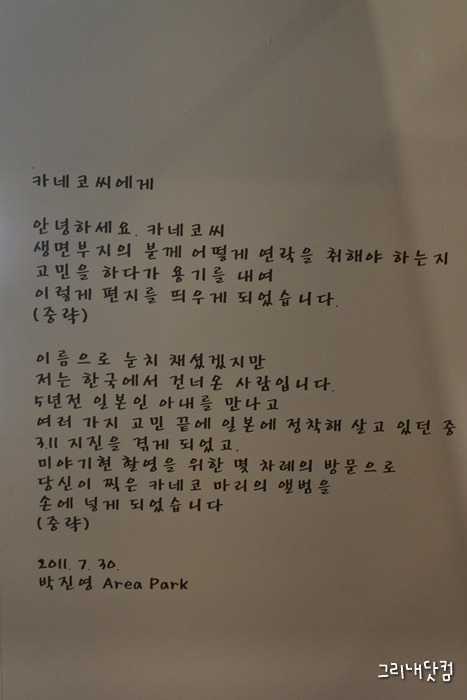 카네코씨에게
안녕하세요. 카네코씨
생면부지의 분께 어떻게 연락을 취해야 하는지
고민을 하다가 용기를 내여
이렇게 편지를 띄우게 되었습니다.
(중략)
이름으로 눈치 채셨겠지만
저는 한국에서 건너온 사람입니다.
5년전 일본인 아내를 만나고
여러 가지 고민 끝에 일본에 정착해 살고 있던 중
3.11 지진을 겪게 되었고,
미야기현 촬영을 위한 몇 차례의 방문으로
당신이 찍은 카네코 마리의 앨범을
손에 넣게 되었습니다
(중략)
2011. 7. 30.
박진영 Area Park
그리내닷컴